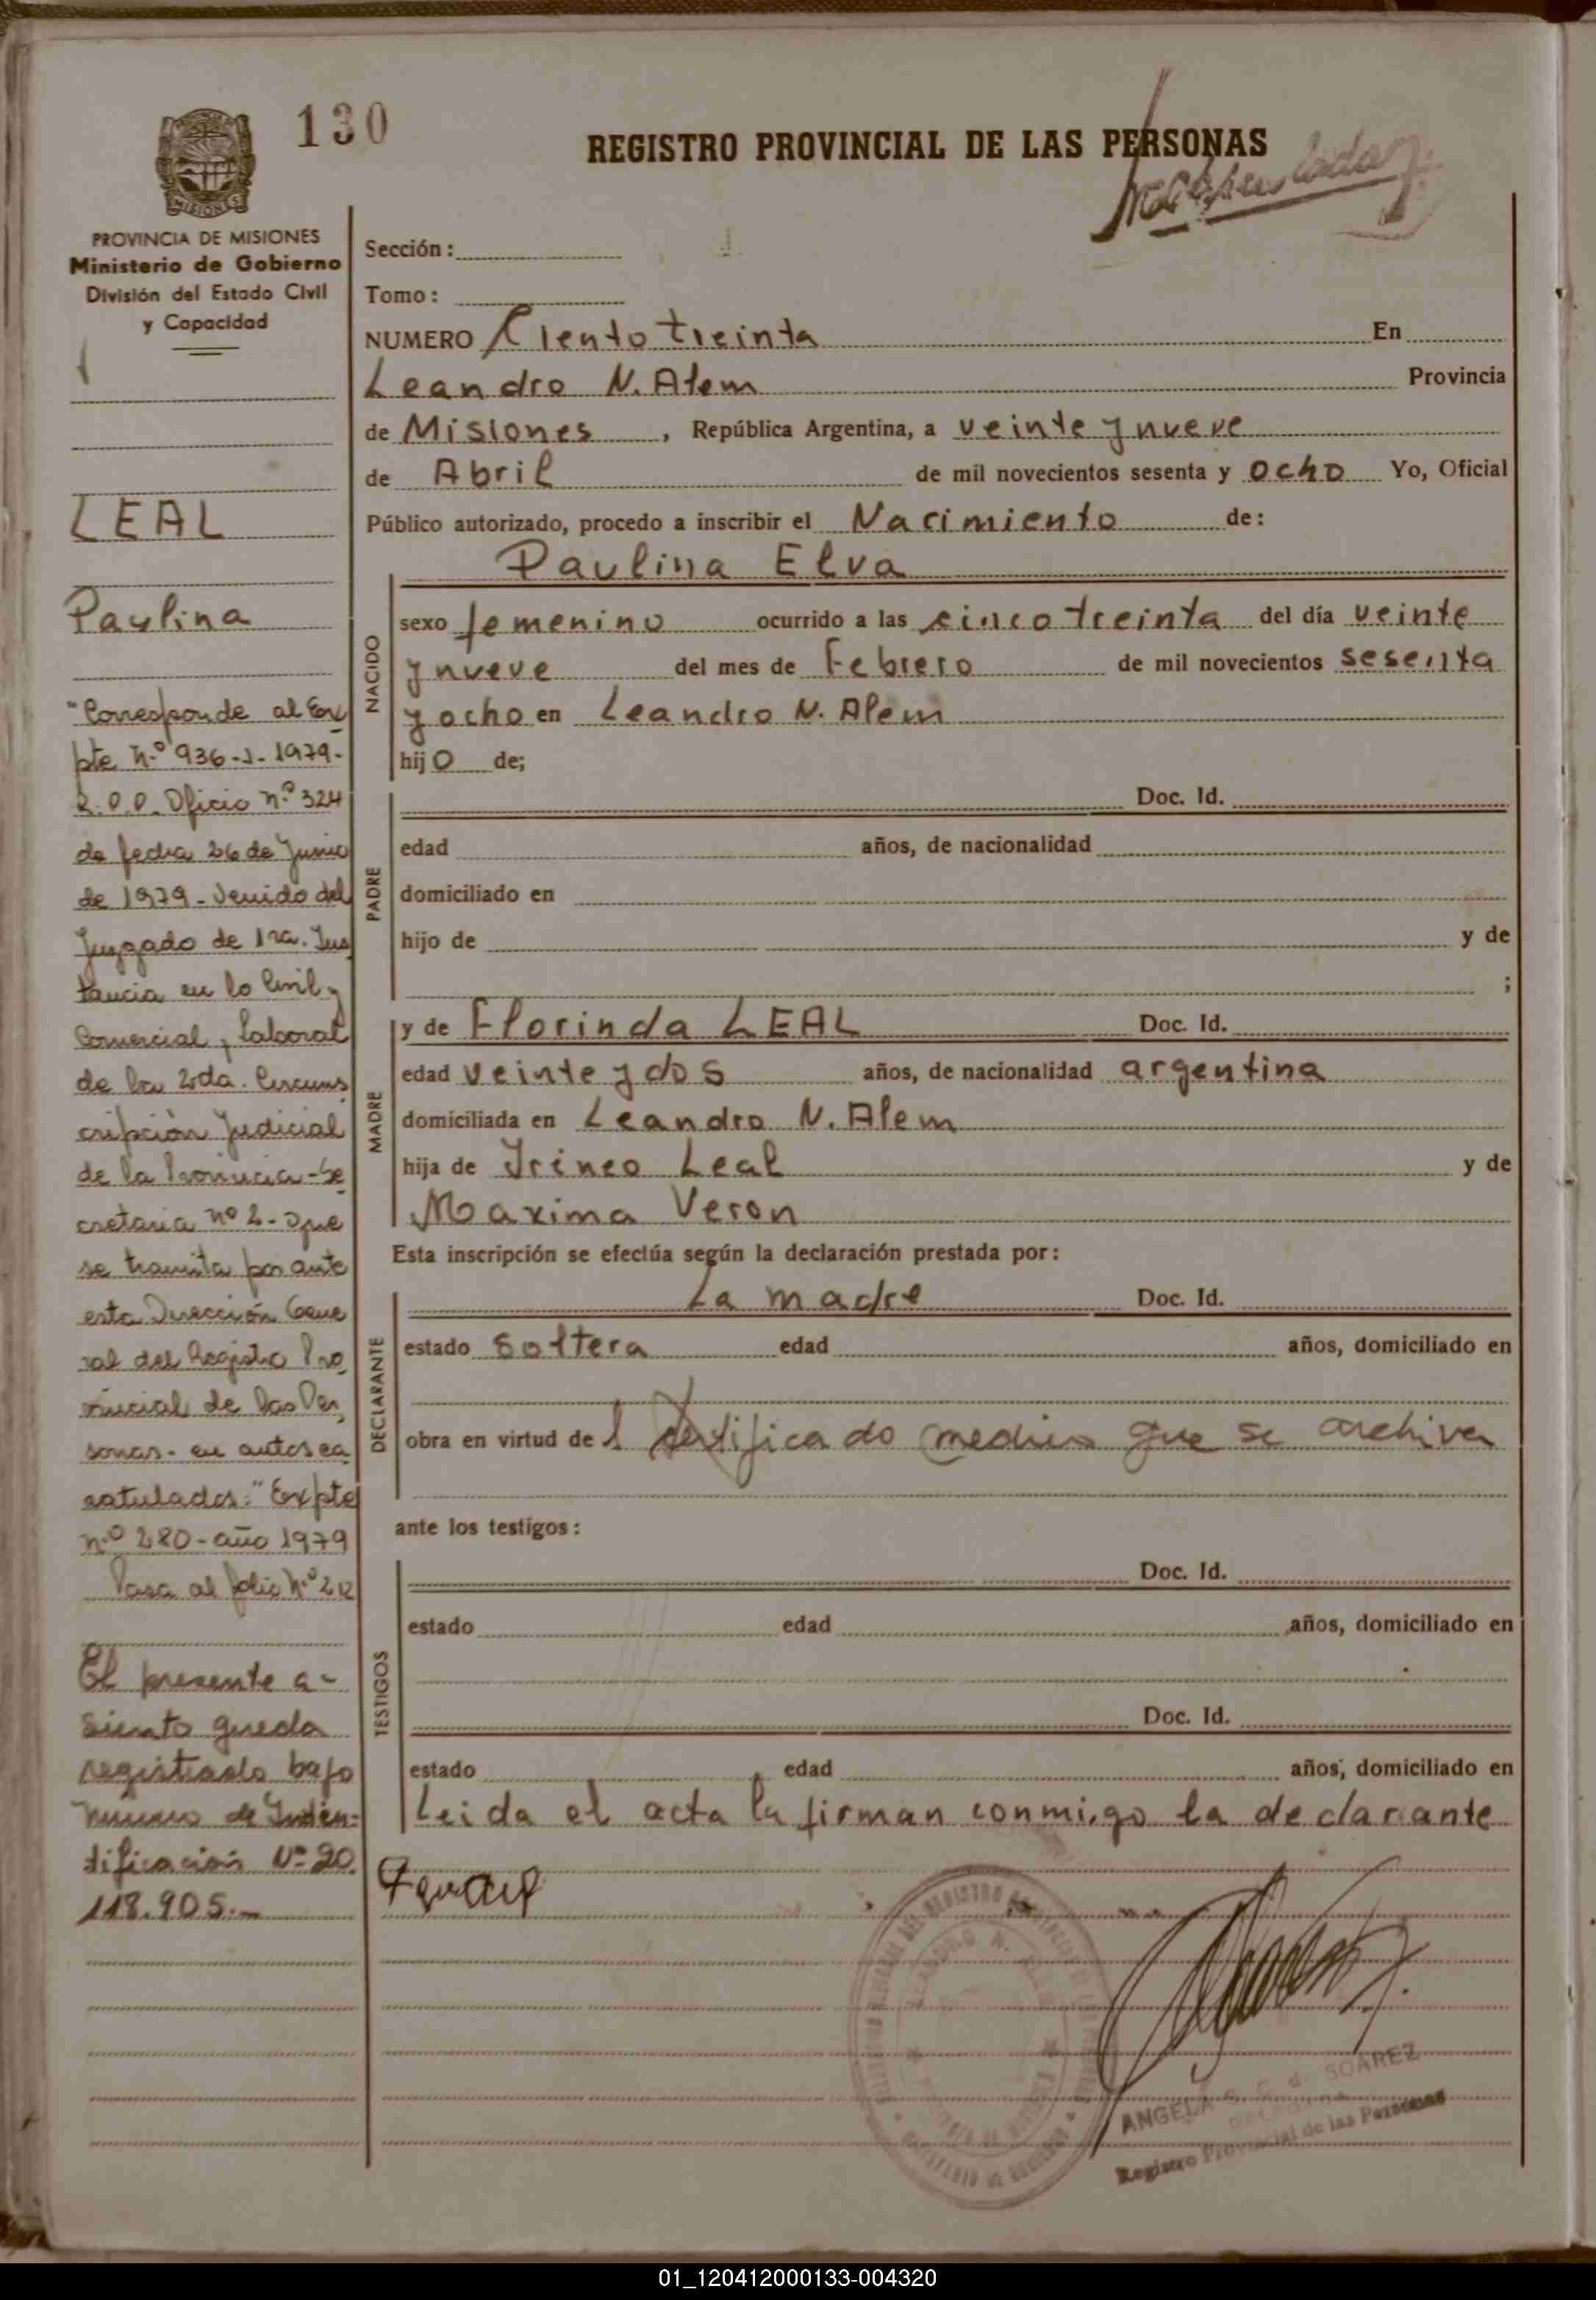 130
REGISTRO PROVINCIAL DE LAS PERSONAS
MISIONES
PROVINCIA DE MISIONES
Ministerio de Gobierno
División del Estado Civil
y Capacidad
LEAL
Paulina
"Corresponde al Ex
pte n.º 936-J-1979-
R.P.P. Oficio n.º 324
de fecha 26 de Junio
de 1979 - Venido del
Juzgado de 1ra. Ins
tancia en lo Civil y
Comercial, y laboral
de la 2da. Circuns
cripción Judicial
de la Provincia - Se
cretaria nº 2 - que
se tramita por ante
esta Dirección Gene
ral del Registro Pro
vincial de las Per
sonas - en autos ca
ratulados: "Expte
n.º 280 - año 1979
Pasa al folio n.º 212
El presente a-
siento queda
registrado bajo
numero de Inden-
tificación Nº 20.
118.905.-
Sección:
Tomo:
NUMERO Ciento treinta En
Leandro N. Alem Provincia
de Misiones, República Argentina, a veinte y nueve
de Abril de mil novecientos sesenta y ocho Yo, Oficial
Público autorizado, procedo a inscribir el Nacimiento de:
Paulina Elva
NACIDO
sexo femenino ocurrido a las cinco treinta del día veinte
y nueve del mes de Febrero de mil novecientos sesenta
y ocho en Leandro N. Alem
hijo de;
PADRE
Doc. Id.
edad años, de nacionalidad
domiciliado en
hijo de y de
;
MADRE
y de Florinda LEAL Doc. Id.
edad veinte y dos años, de nacionalidad argentina
domiciliada en Leandro N. Alem
hija de Irineo Leal y de
Maxima Veron
Esta inscripción se efectúa según la declaración prestada por:
DECLARANTE
La madre Doc. Id.
estado Soltera edad años, domiciliado en
obra en virtud del certificado medico que se archiva
ante los testigos:
TESTIGOS
Doc. Id.
estado edad años, domiciliado en
Doc. Id.
estado edad años, domiciliado en
Leida el acta la firman conmigo la declarante
ANGELA SOAREZ
Registro Provincial de las Personas
01_120412000133-004320